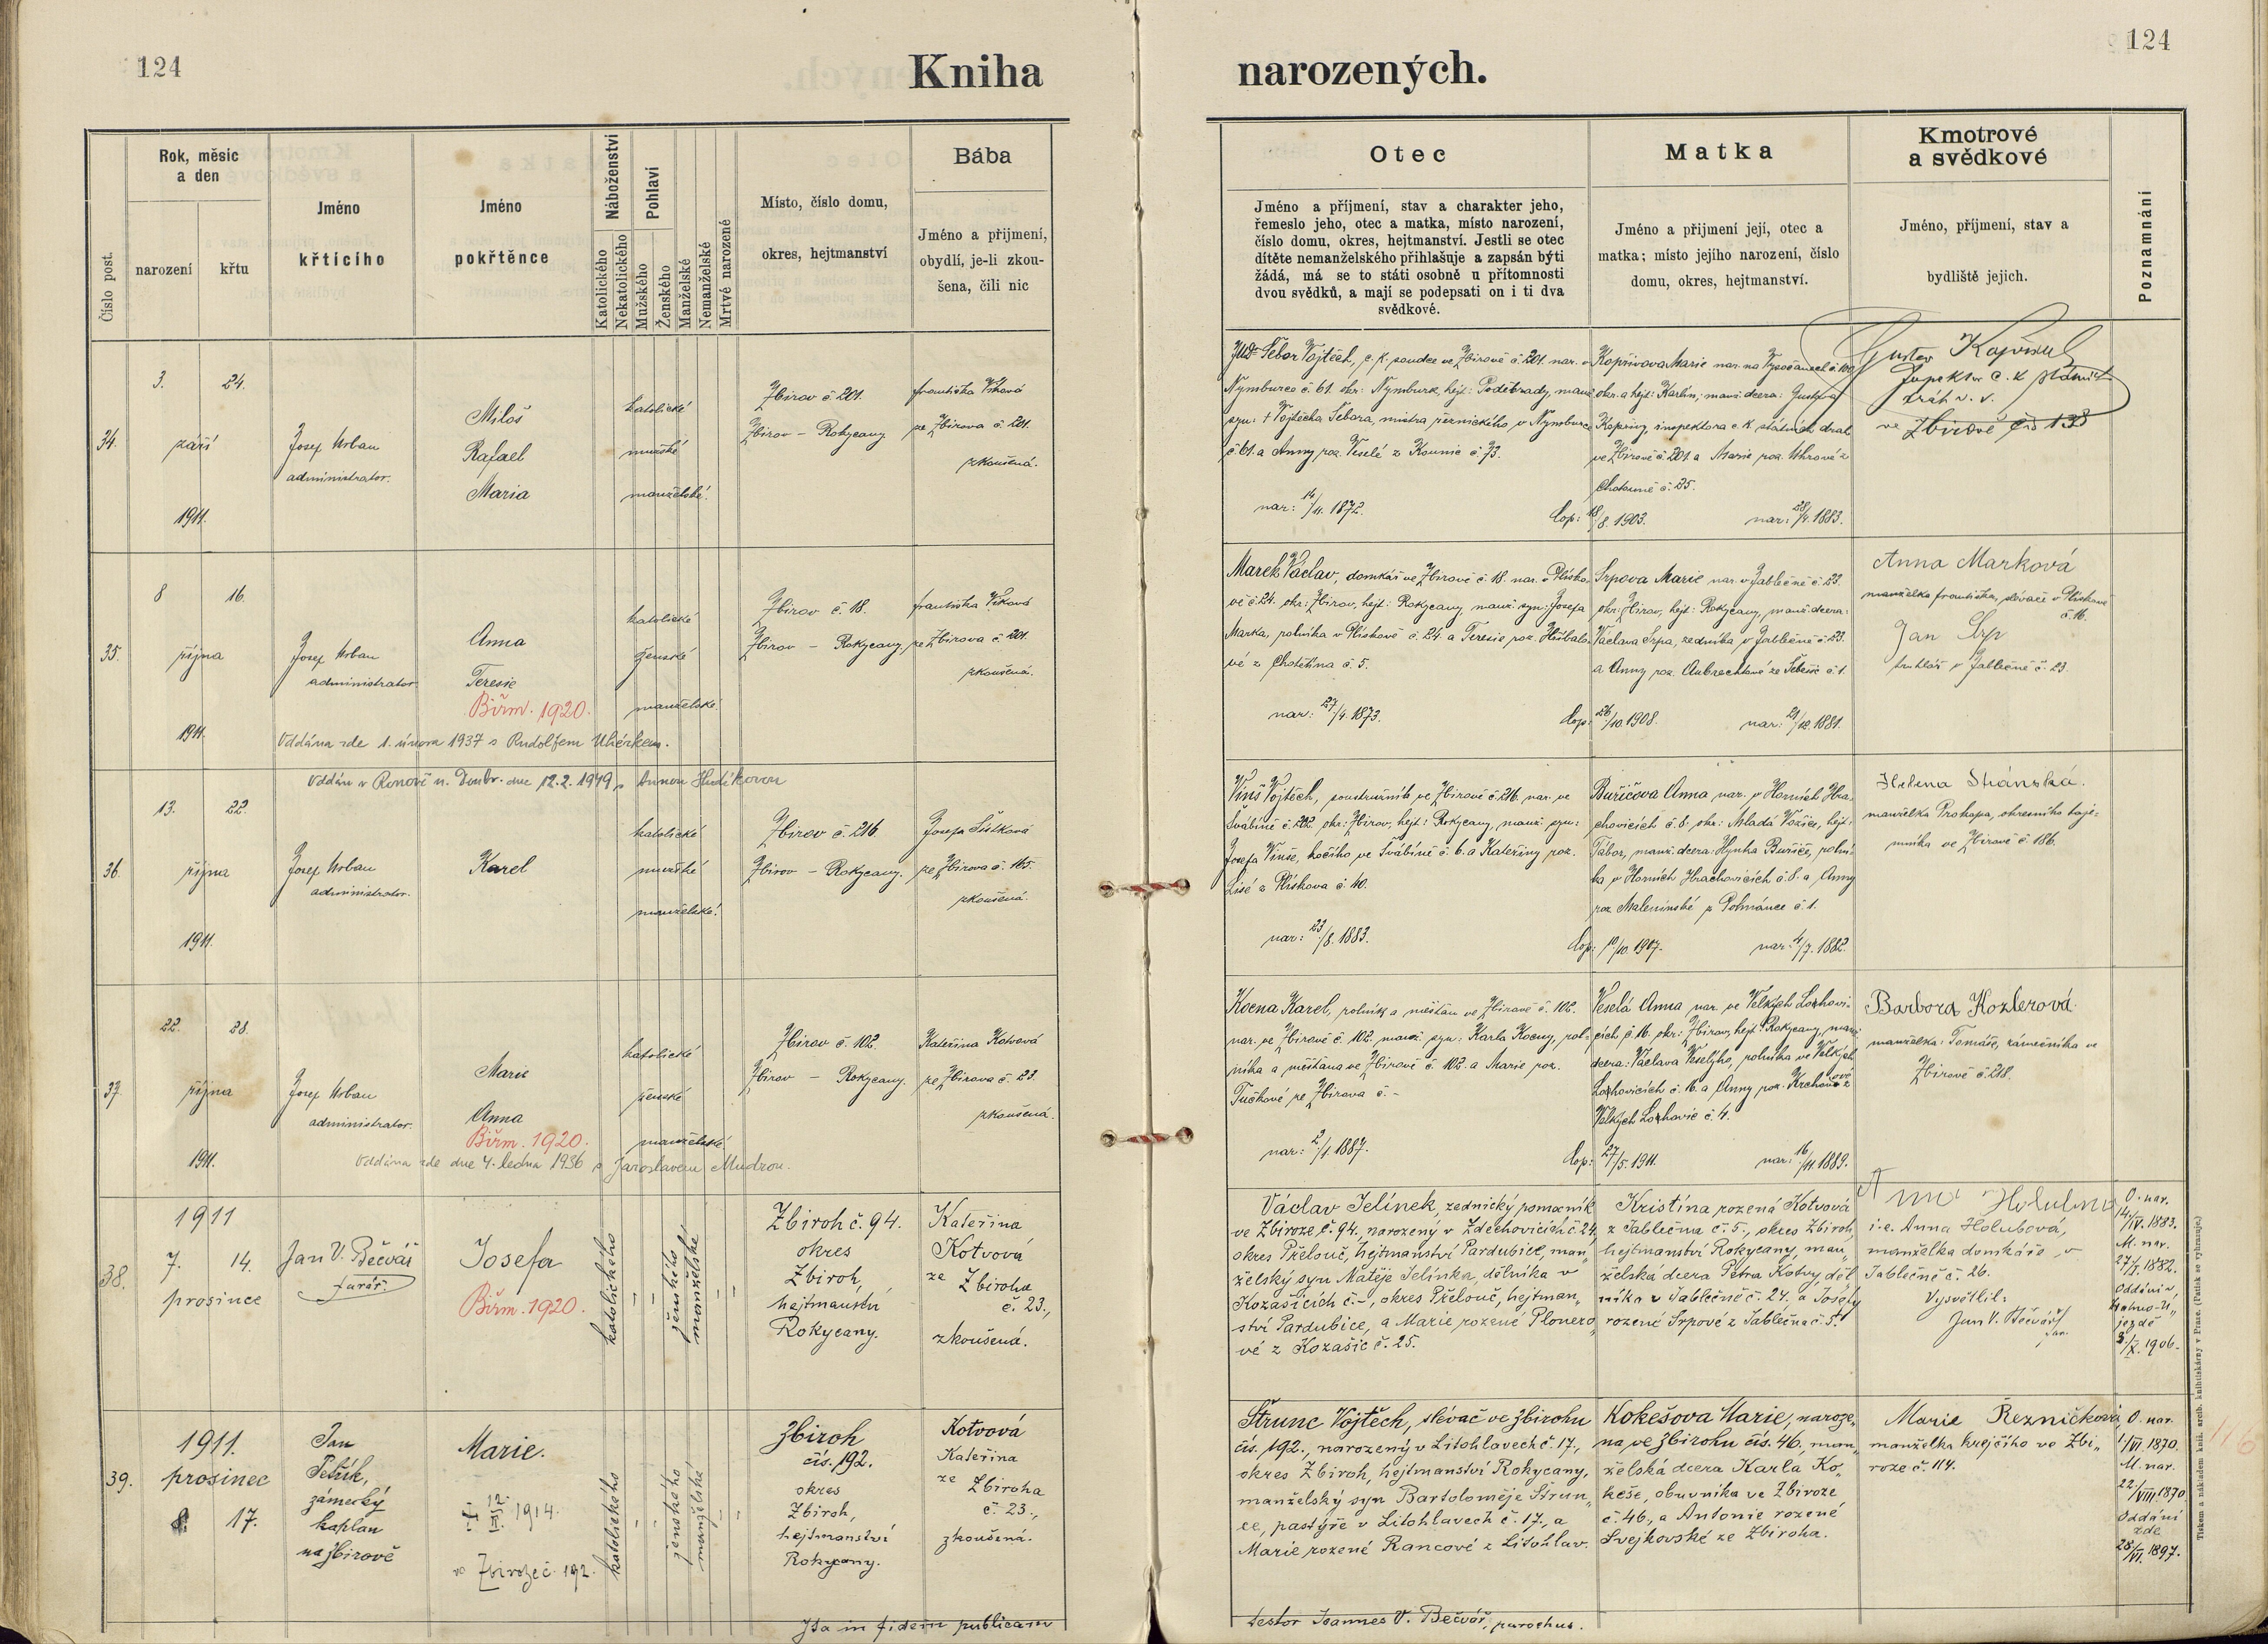 124
Kniha
narozených.
124
Číslo post.
Rok, měsíc
a den
narození
křtu
Jméno
křticího
Jméno
pokřtěnce
Náboženství
Katolického
Nekatolického
Pohlaví
Mužského
Ženského
Manželské
Nemanželské
Mrtvé narozené
Místo, číslo domu,
okres, hejtmanství
Bába
Jméno a přijmení,
obydlí, je-li zkou-
šena, čili nic
Otec
Jméno a příjmení, stav a charakter jeho,
řemeslo jeho, otec a matka, místo narození,
číslo domu, okres, hejtmanství. Jestli se otec
dítěte nemanželského přihlašuje a zapsán býti
žádá, má se to státi osobně u přítomnosti
dvou svědků, a mají se podepsati on i ti dva
svědkové.
Matka
Jméno a přijmení její, otec a
matka; místo jejího narození, číslo
domu, okres, hejtmanství.
Kmotrové
a svědkové
Jméno, příjmení, stav a
bydliště jejich.
Poznamnání
34.
3. 24.
září
1911.
Josef Urban
administrator.
Miloš
Rafael
Maria
katolické
mužské
manželské.
Zbirov č 201.
Zbirov – Rokycany
Františka Vlková
ze Zbirova č. 201.
zkoušená.
JUDr Šebor Vojtěch, c. k. soudce ve Zbirově č. 201. nar. v
Nymburce č. 61. okr: Nymburk, hejt: Poděbrady, manž.
syn: † Vojtěcha Šebora, mistra řeznického, v Nymburce
č. 61. a Anny roz. Veselé z Kounic č. 73.
nar: 14/4. 1872.
Kopřivova Marie nar. na Vysočanech č. 100
okr. a hejt: Karlín, manž. dcera: Gustava
Kopřivy, inspektora c. k. státních drah
ve Zbirově č. 201. a Marie roz. Uhrové z
č. 25.
Cop: 18/8. 1903.
nar: 28/4. 1883.
Gustav Kopřiva
Inspektor c. k. státních
drah v. v.
ve Zbirově čís 138
35.
8 16.
října
1911.
Josef Urban
administrator.
Anna
Teresie
Biřm. 1920.
Oddána zde 1. února 1937 s Rudolfem Uhérkem.
katolické
ženské
manželské.
Zbirov č. 18.
Zbirov – Rokycany,
Františka Vlková
ze Zbirova č 201.
zkoušená.
Marek Václav, domkář ve Zbirově č. 18. nar. v Plísko-
vě č. 24. okr: Zbirov, hejt: Rokycany, manž. syn: Josefa
Marka, rolníka v Plískově č. 24. a Teresie roz. Hříbalo-
vé z Chotětína č. 5.
nar: 27/4. 1873.
Srpova Marie nar. v Jablečně č. 23.
okr: Zbirov, hejt: Rokycany, manž. dcera:
Václava Srpa, zedníka v Jablečně č. 23.
a Anny roz. Aubrechtové ze Sebečic č. 1.
Cop: 26/10. 1908.
nar: 21/12. 1881.
Anna Marková
manželka Františka, slévače v Plískově
č. 16.
Jan Srp
truhlář v Jablečně č. 23.
36.
Oddán v Ronově n. Doubr. dne 12. 2. 1949 s Annou Hudíkovou
13. 22.
října
1911.
Josef Urban
administrator.
Karel
katolické
mužské
manželské.
Zbirov č. 216
Zbirov – Rokycany.
Josefa Šístková
ze Zbirova č. 165.
zkoušená.
Vinš Vojtěch, soustružník ve Zbirově č. 216. nar. ve
Švábíně č. 202. okr: Zbirov, hejt: Rokycany, manž. syn:
Josefa Vinše, kočího ve Švábíně č. 6. a Kateřiny roz.
Lisé z Plískova č. 40.
nar: 23/8. 1883.
Buřičova Anna nar. v Horních Hra-
chovicích č. 8. okr: Mladá Vožice, hejt:
Tábor, manž. dcera: Hynka Buřiče, rolní-
ka v Horních Hrachovicích č. 8. a Anny
roz. Maleninské z Pohnánce č. 1.
Cop: 10/10. 1907.
nar: 4/7. 1882.
Helena Stránská.
manželka Prokopa, okresního taje-
mníka ve Zbirově č. 186.
37.
22. 28.
října
1911.
Josef Urban
administrator.
Marie
Anna
Biřm. 1920.
Oddána zde dne 4. ledna 1936 s Jaroslavem Mudrou.
katolické
ženské
manželské.
Zbirov č. 102.
Zbirov – Rokycany.
Kateřina Kotvová
ze Zbirova č. 23.
zkoušená.
Kocna Karel, rolník a měšťan ve Zbirově č. 102.
nar. ve Zbirově č. 102. manž. syn: Karla Kocny, rol-
níka a měšťana ve Zbirově č. 102. a Marie roz.
Tučkové ze Zbirova č. -
nar: 2/1. 1887.
Veselá Anna nar. ve Velkých Lozhovi-
cích, č. 16. okr: Zbirov, hejt: Rokycany, manž.
dcera: Václava Veselýho, rolníka ve Velkých
Lozhovicích č. 16. a Anny roz. Krchové z
Velkých Lozhovic č. 4.
Cop: 27/5. 1911.
nar: 16/11. 1889.
Barbora Kozlerová
manželka: Tomáše, zámečníka ve
Zbirově č. 218.
38.
1911
7. 14.
prosince
Jan V. Bečvář
farář.
Josefa
Biřm. 1920.
katolického
ženského
manželské
Zbiroh č. 94.
okres
Zbiroh,
hejtmanství
Rokycany.
Kateřina
Kotvová
ze Zbiroha
č. 23.,
zkoušená.
Václav Jelínek, zednický pomocník
ve Zbiroze č. 94. narozený v Zdechovicích č. 24.
okres Přelouč, hejtmanství Pardubice, man„
želský syn Matěje Jelínka, dělníka v
Kozašicích č. -, okres Přelouč, hejtman„
ství Pardubice, a Marie rozené Plonero
vé z Kozašic č. 25.
Kristína rozená Kotvová
z Jablečna č. 5., okres Zbiroh,
hejtmanství Rokycany, man„
želská dcera Petra Kotvy, děl
níka v Jablečně č. 24. a Josefy
rozené Srpové z Jablečna č. 5.
Anna Holubova
i. e. Anna Holubová,
manželka domkáře v
Jablečně č. 26.
Vysvětlil:
Jan V. Bečvář
far.
O. nar.
14/IV. 1883.
M. nar.
27/X. 1882.
Oddáni v
jezdě
3/X. 1906.
39.
1911.
prosinec
8. 17.
Jan
Petřík,
zámecký
kaplan
na Zbirově
Marie.
† 12/II. 1914.
ve Zbiroze č. 192.
katolického
ženského
manželské
Zbiroh
čís. 192.
okres
Zbiroh,
hejtmanství
Rokycany.
Kotvová
Kateřina
ze Zbiroha
č. 23.,
zkoušená.
Štrunc Vojtěch, slévač ve Zbirohu
čís. 192., narozený v Litohlavech č. 17.,
okres Zbiroh, hejtmanství Rokycany,
manželský syn Bartoloměje Štrun„
ce, pastýře v Litohlavech č. 17., a
Marie rozené Rancové z Litohlav.
Kokešova Marie, naroze„
na ve Zbirohu čís. 46., man„
želská dcera Karla Ko„
keše, obuvníka ve Zbiroze
č. 46., a Antonie rozené
Svejkovské ze Zbiroha.
Marie Řezníčková,
manželka krejčího ve Zbi„
roze č. 114.
O. nar.
1/VI. 1870.
M. nar.
22/VIII. 1870
Oddáni
zde
28/VI. 1897.
116
Ita in fidem publicam
testor Joannes V. Bečvář, parochus.
Tiskem a nákladem kníž. arcib. knihtiskárny v Praze. (Patisk se vyhrazuje.)